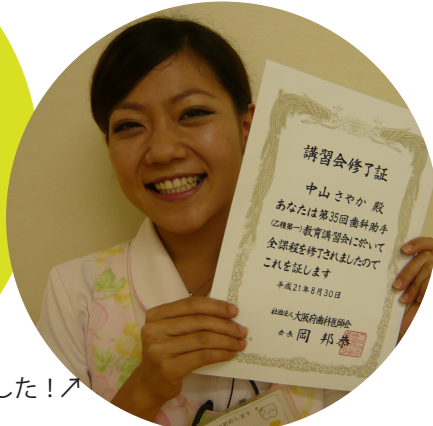 講習会修了証
中山 さやか 殿
あなたは第35回歯科助手
(乙種第一)教育講習会に於いて
全課程を修了されましたので
これを証します
平成21年8月30日
社団法人大阪府歯科医師会
会長 岡 邦恭
した!↗